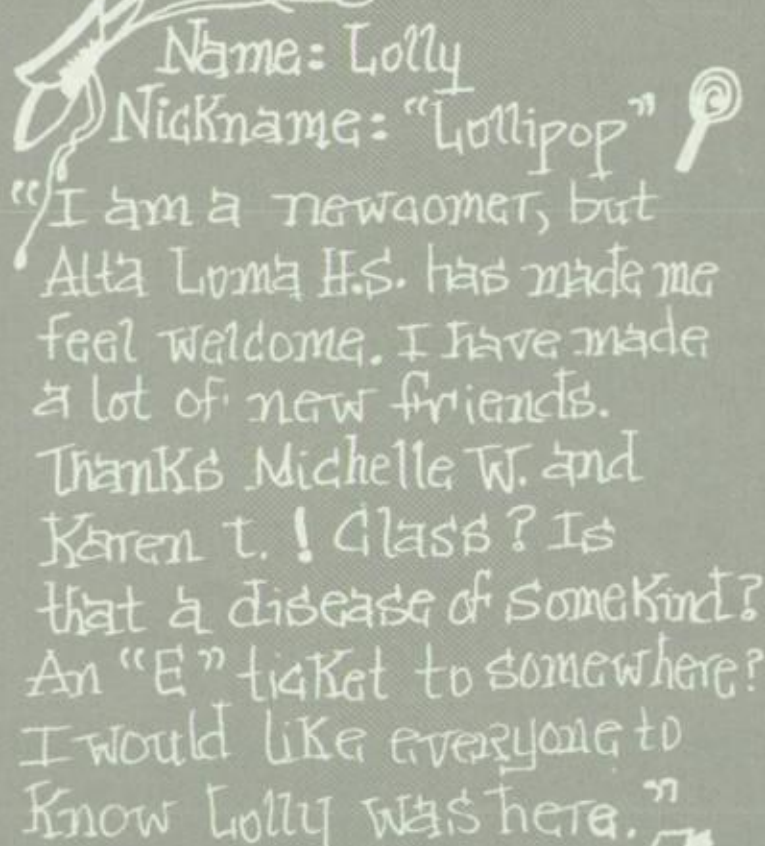 Name: Lolly
Nickname: "Lollipop"
"I am a newcomer, but
Alta Loma H.S. has made me
feel welcome. I have made
a lot of new friends.
Thanks Michelle W. and
Karen t. ! Class? Is
that a disease of some kind?
An "E" ticket to somewhere?
I would like everyone to
Know Lolly was here."